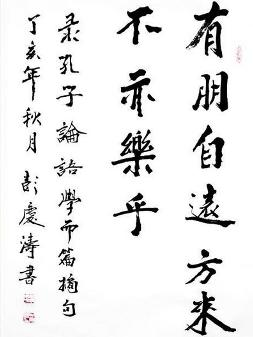 有朋自遠方來
不亦樂乎
录孔子論語學而篇摘句
丁亥年秋月彭慶濤書